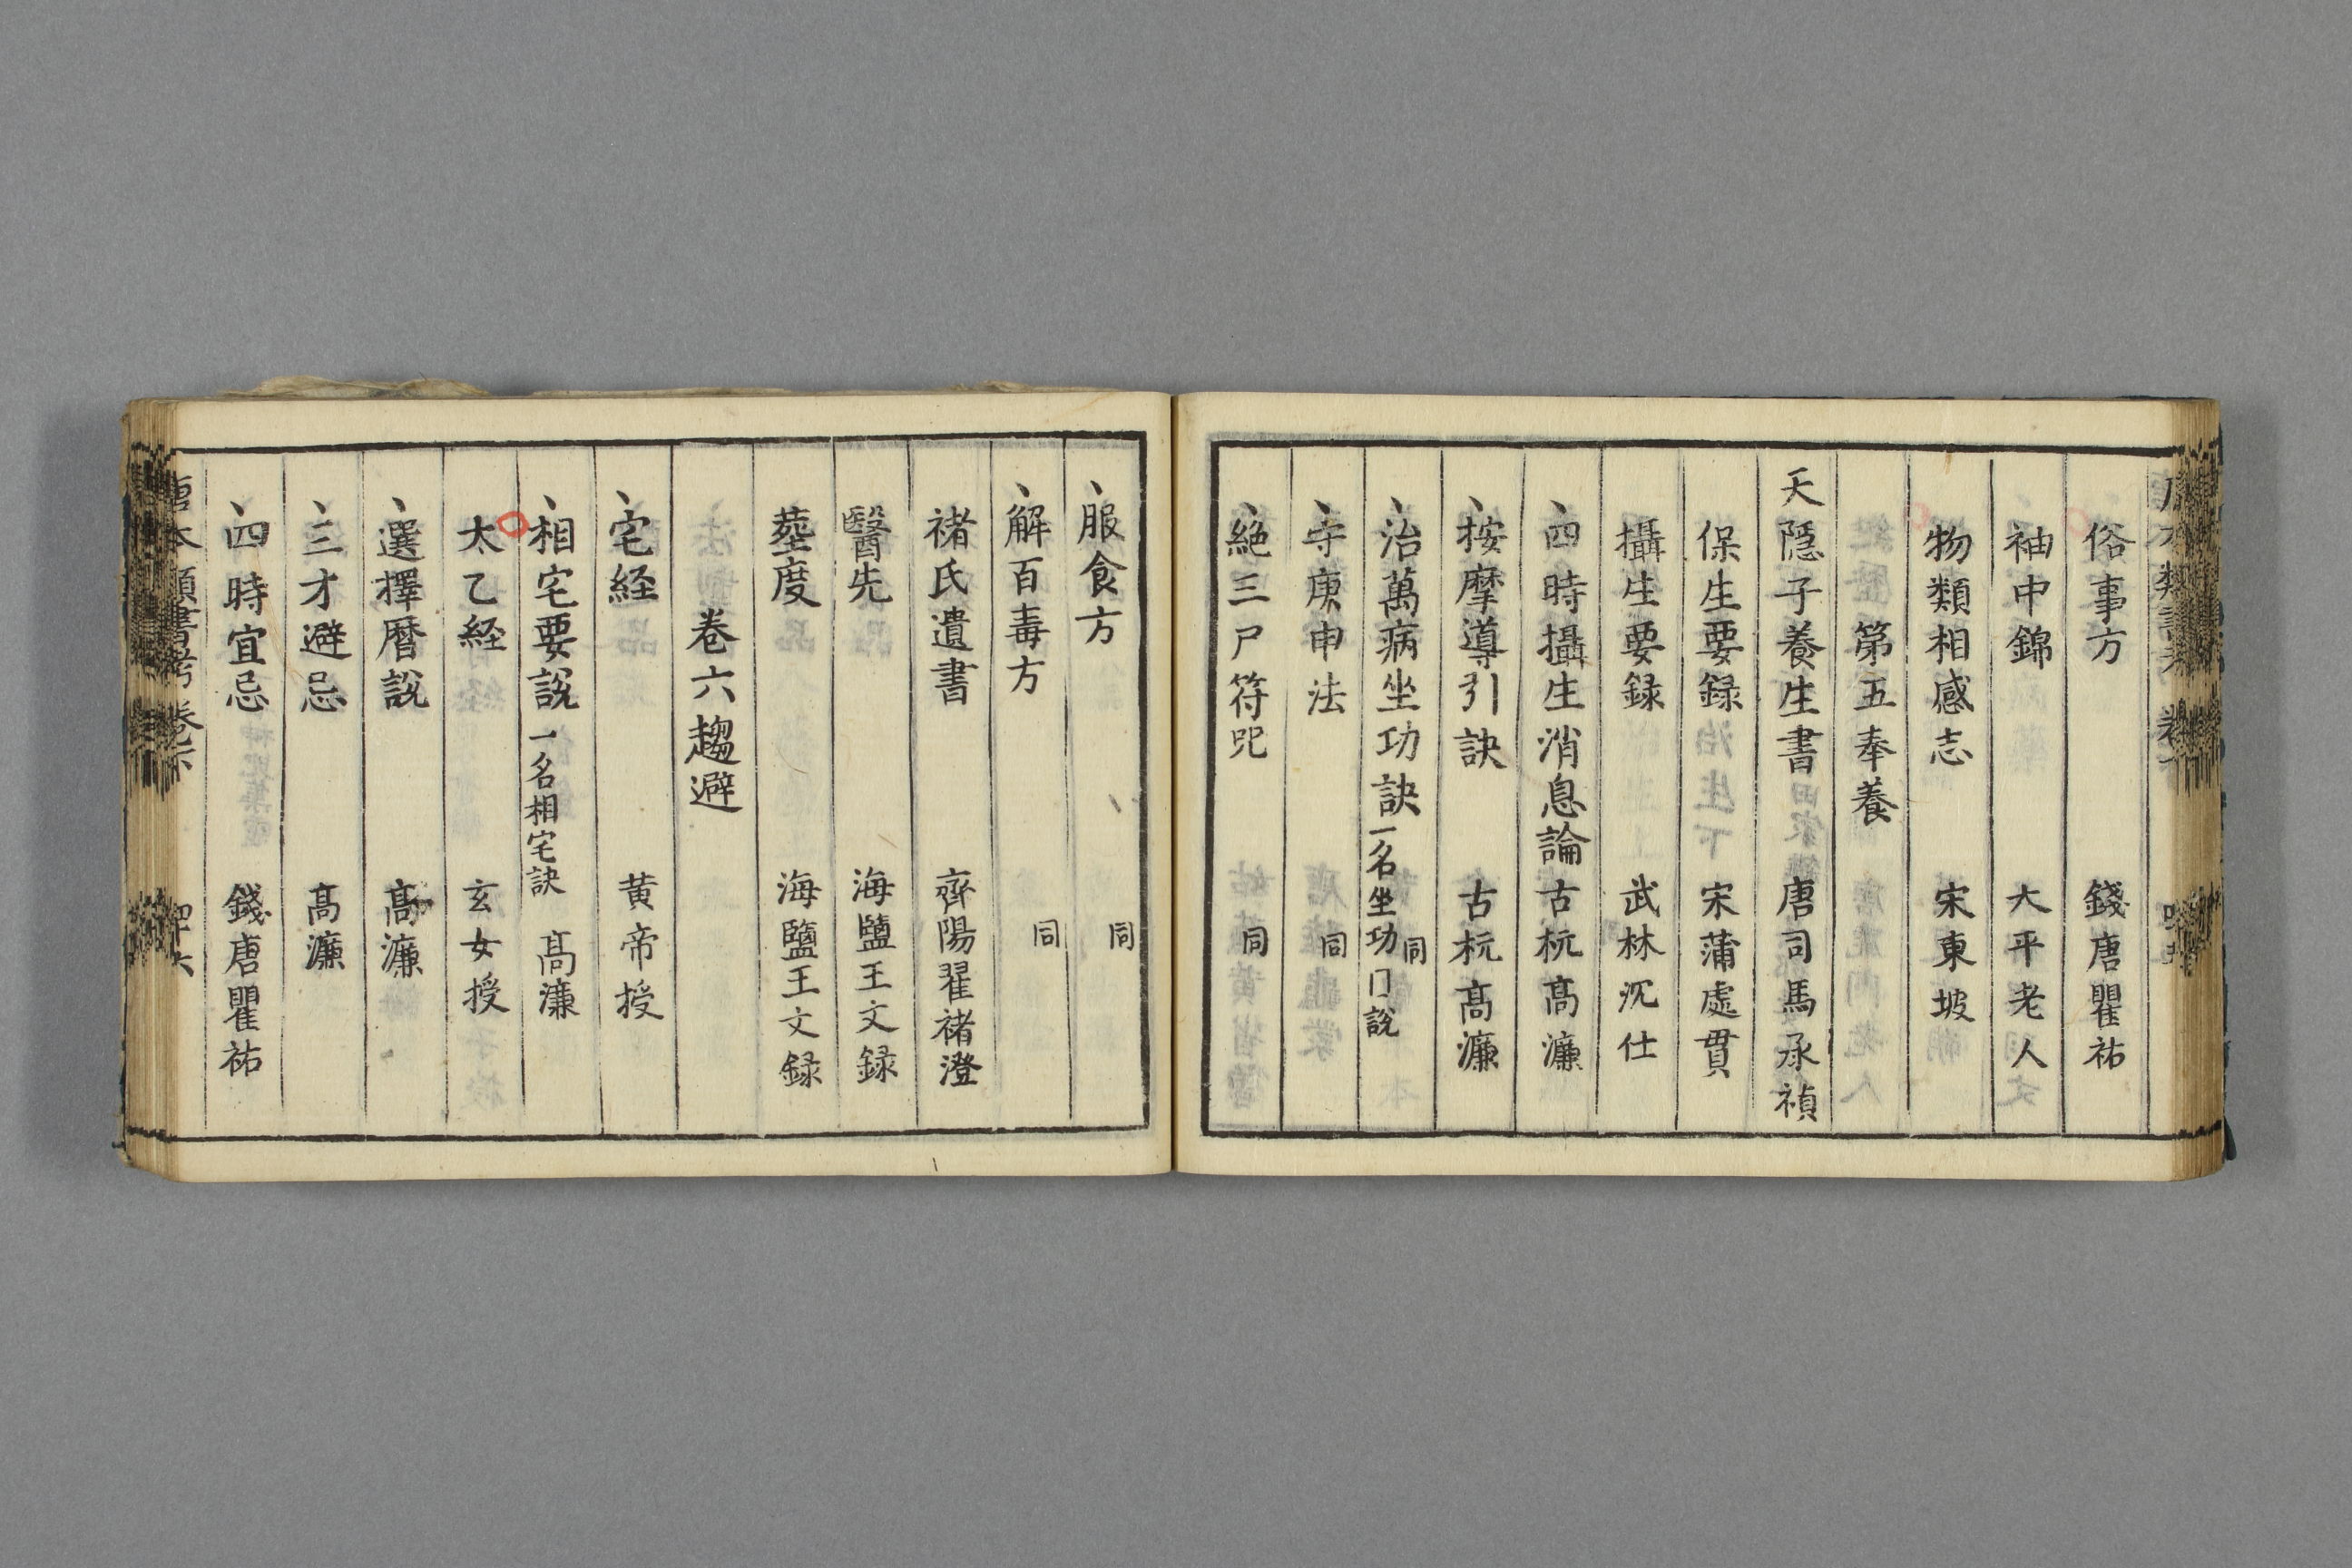 俗事方　錢唐瞿祐
袖中錦　大平老人
物類相感志　宋東坡
第五奉養
天隱子養生書　唐司馬承禎
保生要録　宋蒲處貫
攝生要録　武林沉仕
、四時攝生消息論　古杬髙濂
、按摩導引訣　古杬髙濂
、治萬病坐功訣　一名坐功門説　同
、守庚申法　同
、絶三尸符呪　同
、服食方　同
、解百毒方　同
褚氏遺書　齊陽翟褚澄
醫先　海鹽王文録
塟度　海鹽王文録
卷六趨避
、宅経　黄帝授
、相宅要説　一名相宅訣　髙濂
太乙経　玄女授
、選擇暦説　髙濂
、三才避忌　髙濂
、四時宜忌　錢唐瞿祐
唐本類書考　卷下